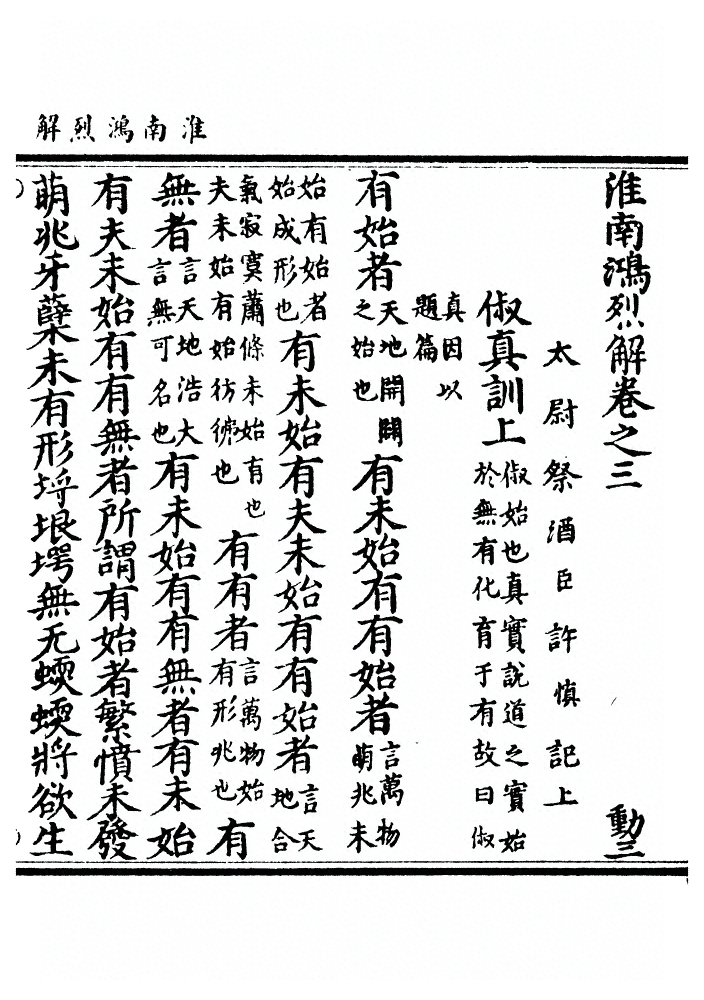 淮南鴻烈解
淮南鴻烈解卷之三 動三
太尉祭酒臣許慎記上
俶真訓上俶始也真實說道之實始於無有化育于有故曰俶
真因以題篇
有始者天地開闢之始也有未始有有始者言萬物萌兆未
始有始者始成形也有未始有夫未始有有始者言天地合
氣寂寞蕭條未始有也夫未始有始彷彿也有有者言萬物始有形兆也有
無者言天地浩大言無可名也有未始有有無者有未始
有夫未始有有無者所謂有始者繁憤未發
萌兆牙蘖未有形埒垠堮無无蝡蝡將欲生